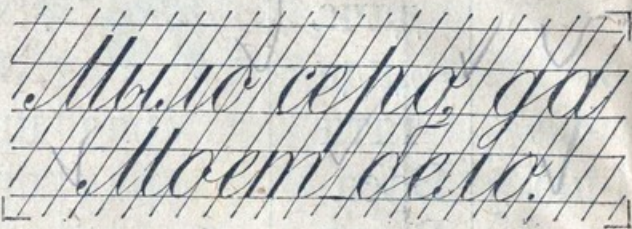 Мыло серо, да
Моет бело.